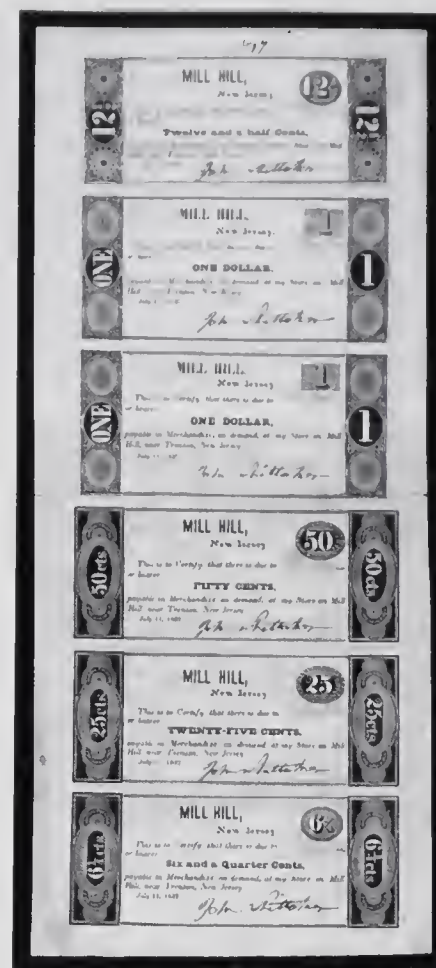 12½
MILL HILL,
New Jersey
12½
12½
Twelve and a half Cents,
John Whittaker
ONE
MILL HILL,
New Jersey.
1
1
or bearer
ONE DOLLAR,
payable in Merchandise on demand, at my Store on Mill
Hill, near Trenton, New Jersey
John Whittaker
ONE
MILL HILL,
New Jersey
1
1
This is to Certify that there is due to
or bearer
ONE DOLLAR,
payable in Merchandise, on demand, at my Store on Mill
Hill, near Trenton, New Jersey
John Whittaker
50 cts
MILL HILL,
New Jersey
50
50 cts
This is to Certify that there is due to
or bearer
FIFTY CENTS,
payable in Merchandise on demand, at my Store on Mill
Hill near Trenton, New Jersey
July 11, 1837
John Whittaker
25 cts
MILL HILL,
New Jersey
25
25 cts
This is to Certify that there is due to
or bearer
TWENTY-FIVE CENTS,
payable in Merchandise on demand at my Store on Mill
Hill near Trenton, New Jersey
John Whittaker
6¼ cts
MILL HILL,
New Jersey
6¼
6¼ cts
This is to Certify that there is due to
or bearer
Six and a Quarter Cents,
payable in Merchandise on demand, at my Store on Mill
Hill, near Trenton, New Jersey
July 11, 1837
John Whittaker